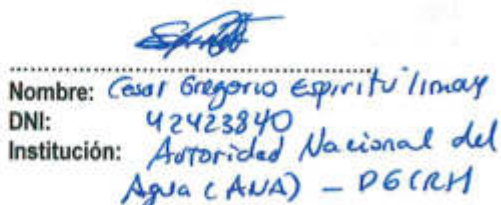 Nombre: Cesar Gregorio Espiritu limay
DNI: 42423840
Institución: Autoridad Nacional del
Agua (ANA) – DGCRH